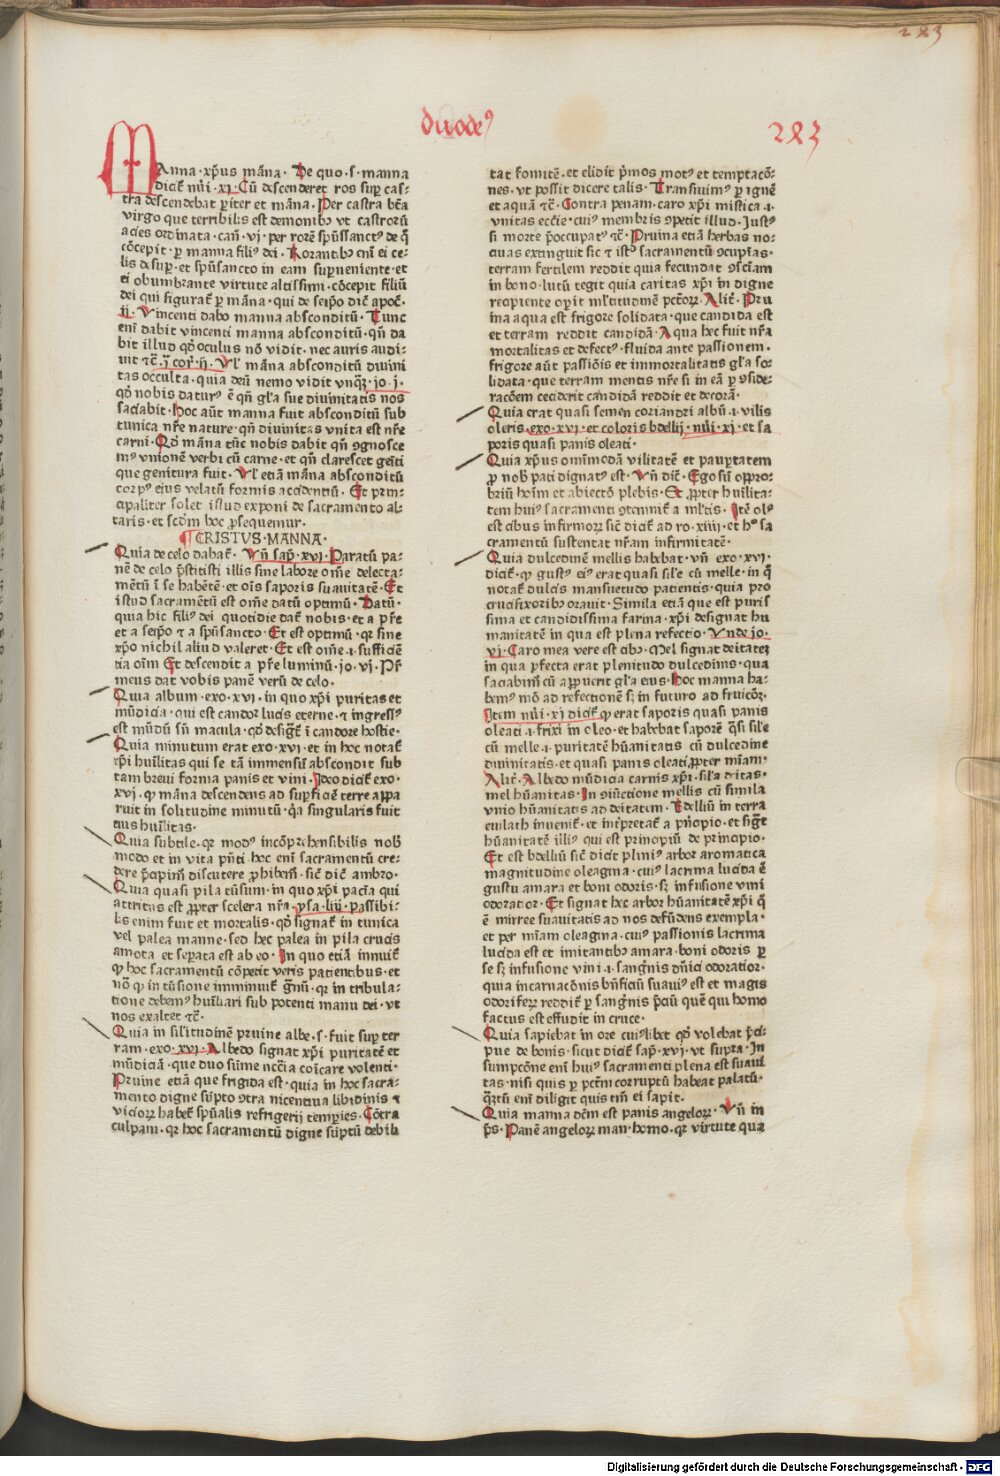 duode⁹
283
Manna·xp̄us māna· De quo·s·manna
dicit̄ nūi·xi·Cū descenderet ros sup̱ cas-
tra descendebat p̱iter et māna·Per castra bt̄a
virgo que terribilis est demonibꝫ vt castrorū
acies ordinata·cañ·vj·per rorē sp̄ussanctꝰ de q̄
cōcepit·p̱ manna filiꝰ dei·Rorantibꝫ em̄ ei ce-
lis desup̱·et sp̄usancto in eam sup̱ueniente·et
ei obumbrante virtute altissimi·cōcepit filiū
dei qui figurat̄ p̱ māna·qui de seip̄o dic̄ apoc̄·
ij·Vincenti dabo manna absconditū·Tunc
eni dabit vincenti manna absconditū·qn̄ da-
bit illud qd̄ oculus nō vidit·nec auris audi-
uit ⁊c̄·j·cor̄·ij·Vl̄ māna absconditū diuini
tas occulta·quia deū nemo vidit vnq̄ꝫ·jo·j·
qd̄ nobis datur ē qn̄ gl̄a sue diuinitatis nos
saciabit·Hoc aūt manna fuit absconditū sub
tunica nr̄e nature·qn̄ diuinitas vnita est nr̄e
carni·Qd̄ māna tūc nobis dabit qn̄ ꝯgnosce
mꝰ vnionē verbi cū carne·et qn̄ clarescet gēti
que genitura fuit·Vl̄ etiā māna absconditū
corpꝰ eius velatū formis accidentiū·Et prin-
cipaliter solet istud exponi de sacramento al-
taris·et scd̄m hoc p̱sequemur·
¶CRISTVS·MANNA·
Quia de celo dabat̄·Vn̄ sap̄·xvi·Paratū pa-
nē de celo p̄stitisti illis sine labore om̄e delecta-
mētū ī se habētē·et oīs saporis suauitatē·Et
istud sacramētū est om̄e datū optimū·Datū·
quia hic filiꝰ dei quotidie dat̄ nobis·et a pr̄e
et a seip̄o ⁊ a sp̄usancto·Et est optimū·qꝛ sine
xp̄o nichil aliud valeret·Et est om̄e·i·sufficiē
tia oīm Et descendit a pr̄e luminū·jo·vj·Pr̄
meus dat vobis panē verū de celo·
Quia album·exo·xvi·in quo xp̄i puritas et
mūdicia·qui est candor lucis eterne·⁊ ingressꝰ
est mūdū sn̄ macula·qd̄ desigt̄ ī candore hostie·
Quia minutum erat exo·xvi·et in hoc notat̄
xp̄i hūilitas qui se tā immensū abscondit sub
tam breui forma panis et vini·Ideo dicit̄ exo·
xvj·ꝙ māna descendens ad sup̱ficiē terre appa
ruit in solitudine minutū·q̄a singularis fuit
eius huīlitas·
Quia subtile·qꝛ modꝰ incōp̱rehensibilis nob̄
modo et in vita p̄nti·hoc eni sacramentū cre-
dere p̄cipim̄ discutere p̱hibem̄·sic̄ dic̄ ambro·
Quia quasi pila tūsum·in quo xp̄i pacīa qui
attritus est p̱pter scelera nr̄a·ysa·liij·passibi-
lis enim fuit et mortalis·qd̄ signat̄ in tunica
vel palea manne·sed hec palea in pila crucis
amota et sep̱ata est ab eo·In quo etiā innuit̄
ꝙ hoc sacramentū cōpetit veris patientibus·et
nō ꝙ in tūsione imminuit̄ grānū·qꝛ in tribula-
tione debemꝰ hūiliari sub potenti manu dei·vt
nos exaltet ⁊c̄·
Quia in sil̄itudinē pruine albe·s·fuit sup̱ ter
ram·exo·xvj·Albedo signat xp̄i puritatē et
mūdiciā·que duo sūme nccīa cōicare volenti·
Pruine etiā que frigida est·quia in hoc sacra-
mento digne sūpto ꝯtra nicentiua libidinis ⁊
vicioꝝ habet̄ sp̄ualis refrigerij temp̱ies·Cōtra
culpam·qꝛ hoc sacramentū digne sūptū debili
tat fomitē·et elidit p̄mos motꝰ et temptacō-
nes·vt possit dicere talis·Transiuimꝰ p̱ ignē
et aquā ⁊c̄·Contra penam·caro xp̄i mistica·i·
vnitas eccīe·cuiꝰ membris ꝯpetit illud·Justꝰ
si morte p̄occupatꝰ ⁊c̄·Pruina etiā herbas no-
cuas extinguit sic ⁊ istꝰ sacramentū ꝯcupīas·
terram fertilem reddit quia fecundat ꝯscīam
in bono·lutū tegit quia caritas xp̄i in digne
recipiente op̱it ml̄titudinē pctōꝝ·Alit̄·Pru
ina aqua est frigore solidata·que candida est
et terram reddit candidā·Aqua hec fuit nr̄a
mortalitas et defectꝰ·fluida ante passionem·
frigore aūt passiōis et immortalitatis gl̄a so-
lidata·que terram mentis nr̄e si in eā p̱ ꝯside-
racōem ceciderit candidā reddit et decorā·
Quia erat quasi semen coriandri albū·i·vilis
oleris·exo·xvj·et coloris bdellij·nūi·xj·et sa
poris quasi panis oleati·
Quia xp̄us omīmodā vilitatē et paup̱tatem
p̱ nob̄ pati dignatꝰ est·Vn̄ dic̄·Ego sū oppro-
briū hoīm et abiectō plebis·Et p̱pter hūilita-
tem huiꝰ sacramenti ꝯtemnit̄ a ml̄tis·Itē olꝰ
est cibus infirmoꝝ sic̄ dicit̄ ad ro·xiiij·et hꝰ sa
cramentū sustentat nr̄am infirmitatē·
Quia dulcedinē mellis habebat·vn̄ exo·xvj·
dicit̄·ꝙ gustꝰ eiꝰ erat quasi sil̄e cū melle·in q̄
notat̄ dulcis mansuetudo patientis·quia pro
crucifixoribꝫ orauit·Simila etiā que est puris
sima et candidissima farina·xp̄i designat hu
manitatē in qua est plena refectio·Vnde jo·
vj·Caro mea vere est cibꝫ·Mel signat deitatē
in qua p̱fecta erat plenitudo dulcedinis·qua
saciabimꝰ cū apparuerit gl̄a eius·Hoc manna ha-
bemꝰ mō ad refectionē sꝫ in futuro ad fruicōꝫ·
Item nūi·xj dicit̄ ꝙ erat saporis quasi panis
oleati·i·frixi in oleo·et habebat saporē q̄si sil̄e
cū melle·i·puritatē hūanitatis cū dulcedine
diuinitatis·et quasi panis oleati p̱pter mīam·
Alit̄·Albedo mūdicia carnis xp̄i·sil̄a deitas·
mel hūanitas·In ꝯiūctione mellis cū simila
vnio hūanitatis ad deitatem·Bdelliū in terra
euilath inuenit̄·et int̄pretat̄ a p̄ncipio·et sigt̄
hūanitatē illiꝰ qui est principiū de principio·
Et est bdelliū sic̄ dicit pliniꝰ arbor aromatica
magnitudine oleagina·cuiꝰ lacrima lucida ē
gustu amara et boni odoris·sꝫ infusione vini
odoratior·Et signat hec arbor hūanitatē xp̄i q̄
ē mirree suauitatis ad nos defūdens exempla·
et per mīam oleagina·cuiꝰ passionis lacrima
lucida est et imitantibꝫ amara·boni odoris p̱
se sꝫ infusione vini·i·sangīnis dn̄ici odoratior·
quia incarnacōnis bn̄ficiū suauiꝰ est et magis
odoriferꝝ reddit̄ p̱ sangīnis p̄ciū quē qui homo
factus est effudit in cruce·
Quia sapiebat in ore cuiꝰlibet qd̄ volebat p̄ci-
pue de bonis·sicut dicit̄ sap̄·xvj·vt supra·In
sumpcōne eni huiꝰ sacramenti plena est suaui
tas·nisi quis p̱ pctm̄ corruptū habeat palatū·
q̄rtū eni diligit quis tm̄ ei sapit·
Quia manna dcm̄ est panis angeloꝝ·Vn̄ in
p̄s·Panē angeloꝝ man·homo·qꝛ virtute qua
Digitalisierung gefördert durch die Deutsche Forschungsgemeinschaft - DFG